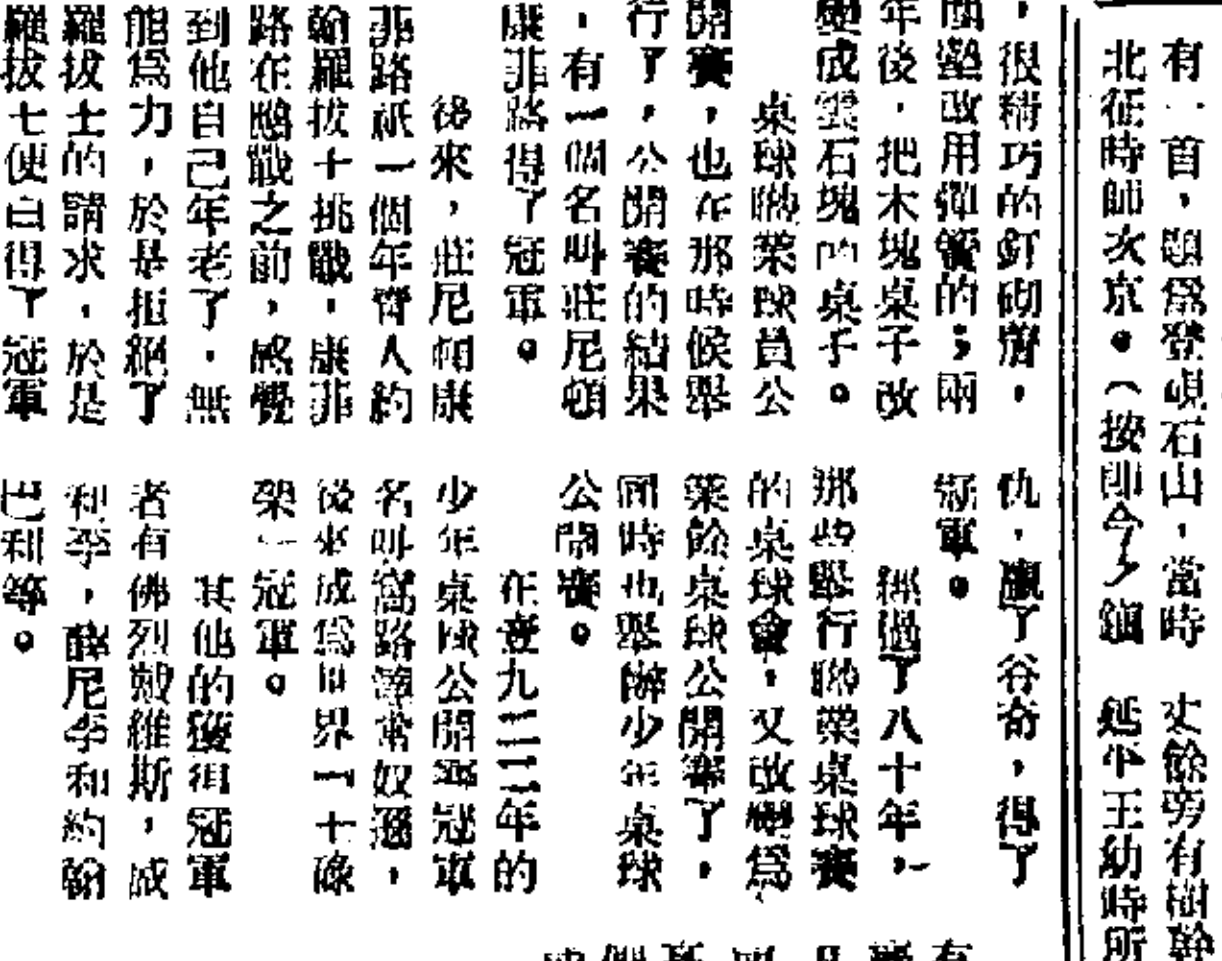 有一首，題爲登峴石山，當時
北征時師次京。（按即今之鎭
，很精巧的釘砌膺，
面墊改用彈簧的；兩
年後，把木塊桌子改
變成雲石塊的桌子。
桌球聯業球員公
開賽，也在那時候舉
行了，公開賽的結果
，有一個名叫莊尼頓
康菲路得了冠軍。
後來，莊尼和康
菲路祇一個年青人約
翰羅拔十挑戰，康菲
路在鏖戰之前，感覺
到他自己年老了，無
能爲力，於是拒絕了
羅拔士的請求，於是
羅拔士便白得了冠軍
丈餘旁有樹幹
延平王幼時所
仇，贏了谷奇，得了
冠軍。
經過了八十年，
那些舉行聯業桌球賽
的桌球會，又改變爲
業餘桌球公開賽了，
同時也舉辦少年桌球
公開賽。
在壹九二二年的
少年桌球公開賽冠軍
名叫窩路
後來成爲世界一十
桀一冠軍。
其他的獲得冠軍
者有佛烈戴維斯，威
利李，薛尼李和約翰
巴利等。